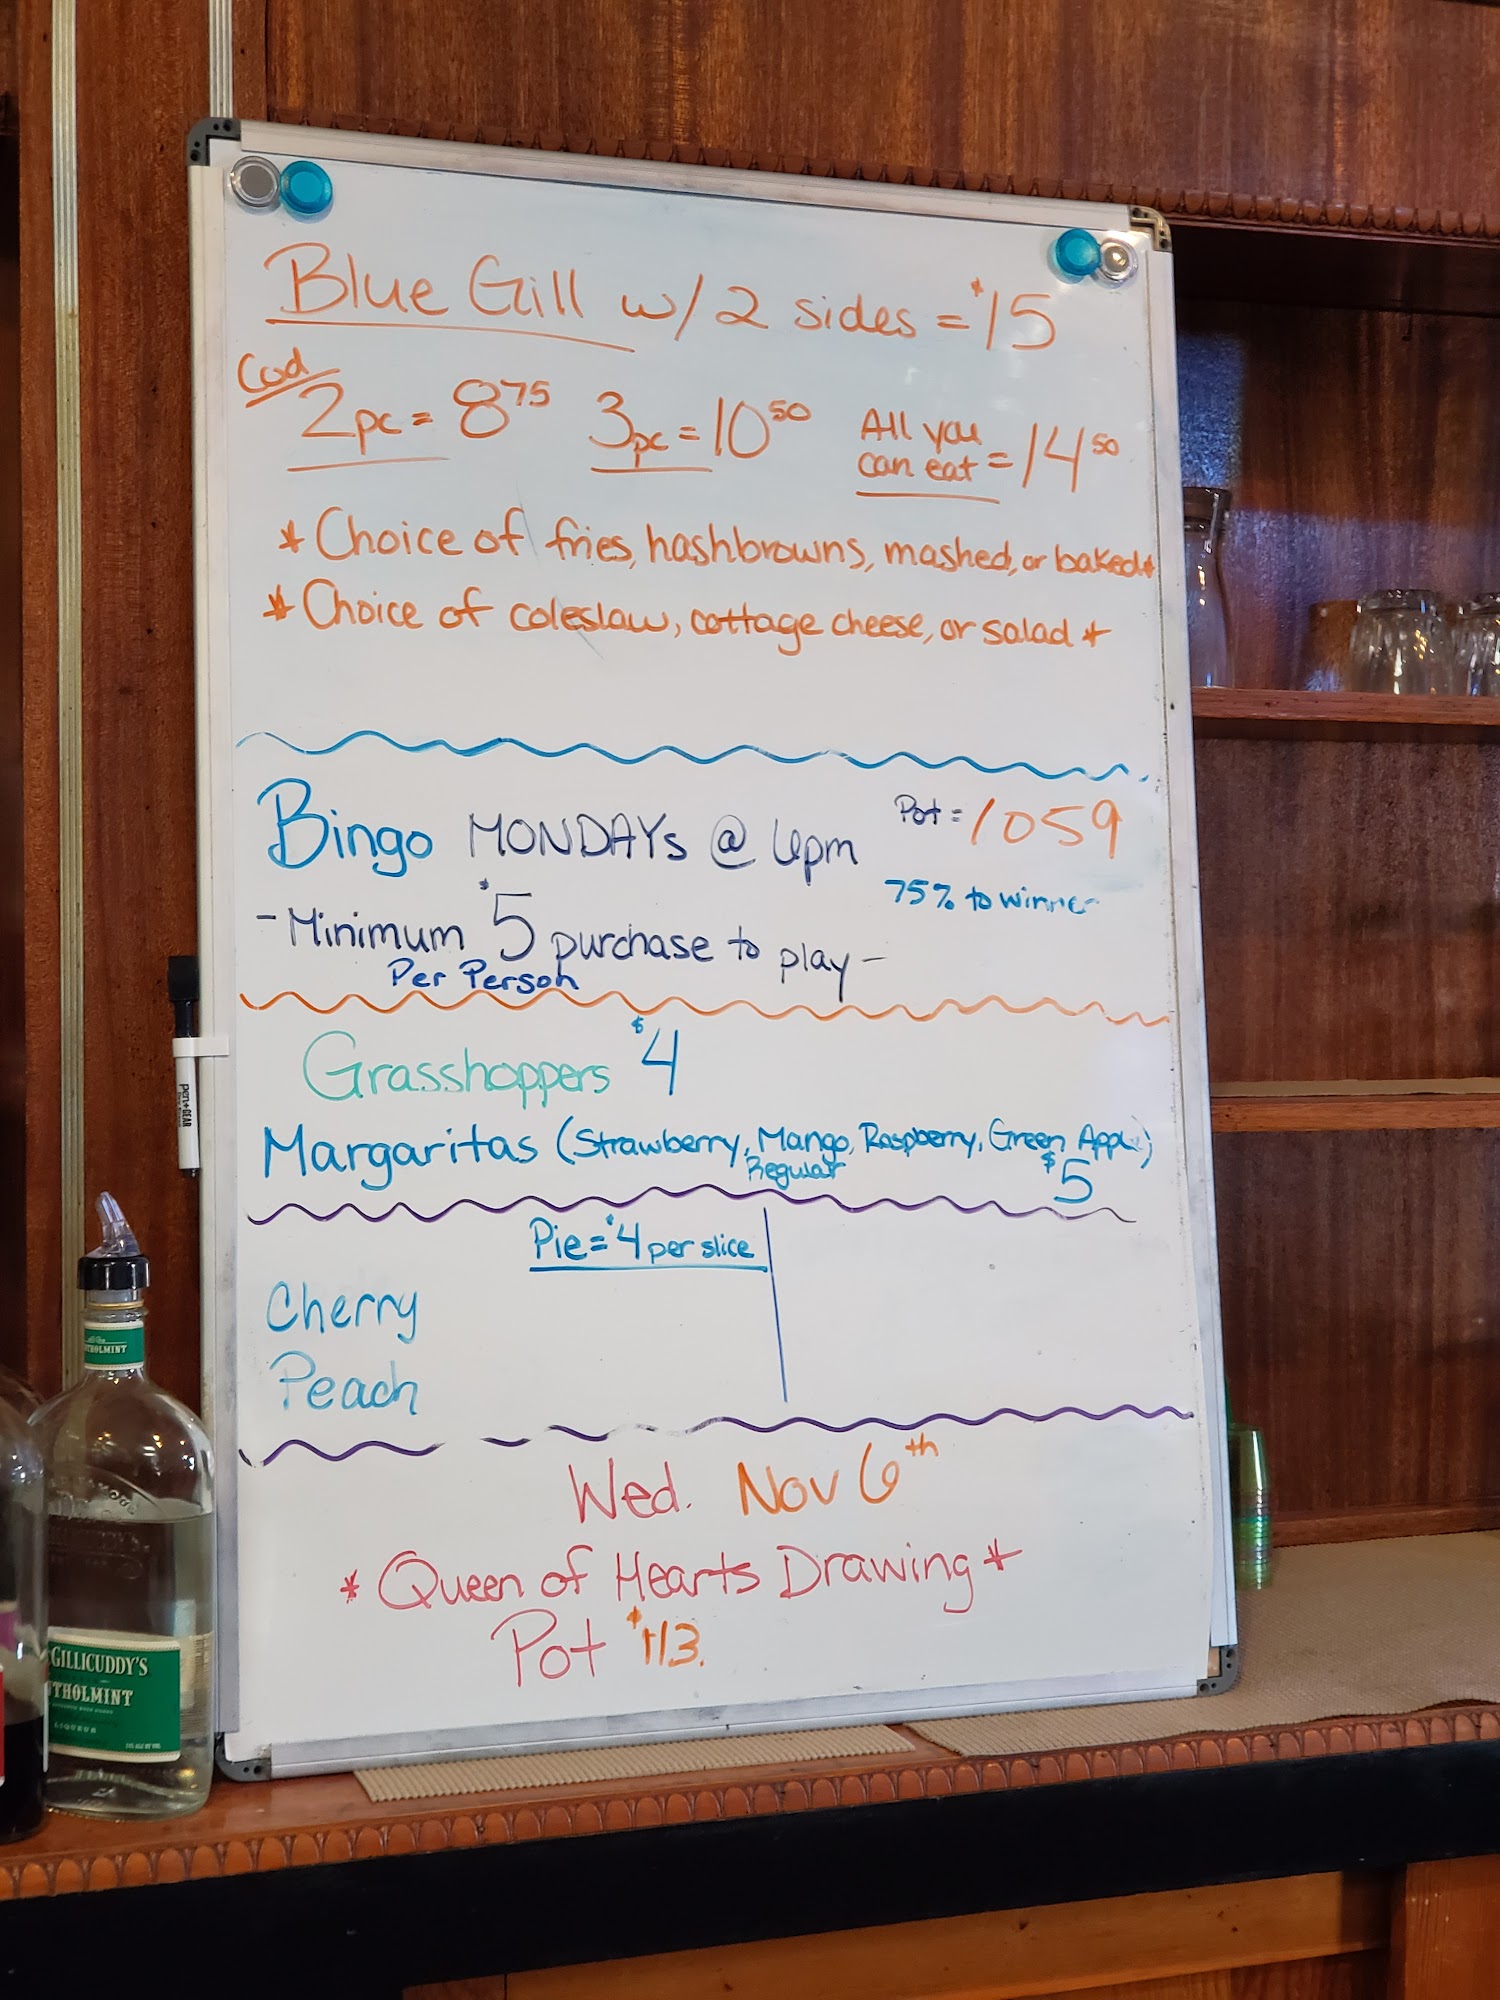 Blue Gill w/ 2 sides = $15
Cod
2pc = 8 75 3pc = 10 50 All you can eat = 14 50
* Choice of fries, hashbrowns, mashed, or baked *
* Choice of coleslaw, cottage cheese, or salad *
Bingo MONDAYs @ 6pm Pot = 1059
75% to winner
- Minimum $5 purchase to play -
Per Person
Grasshoppers $4
Margaritas (Strawberry, Mango, Raspberry, Green Apple)
Regular $5
Pie = $4 per slice
Cherry
Peach
Wed. Nov 6th
* Queen of Hearts Drawing *
Pot $113.
pen+GEAR
THOLMINT
GILLICUDDY'S
THOLMINT
LIQUEUR